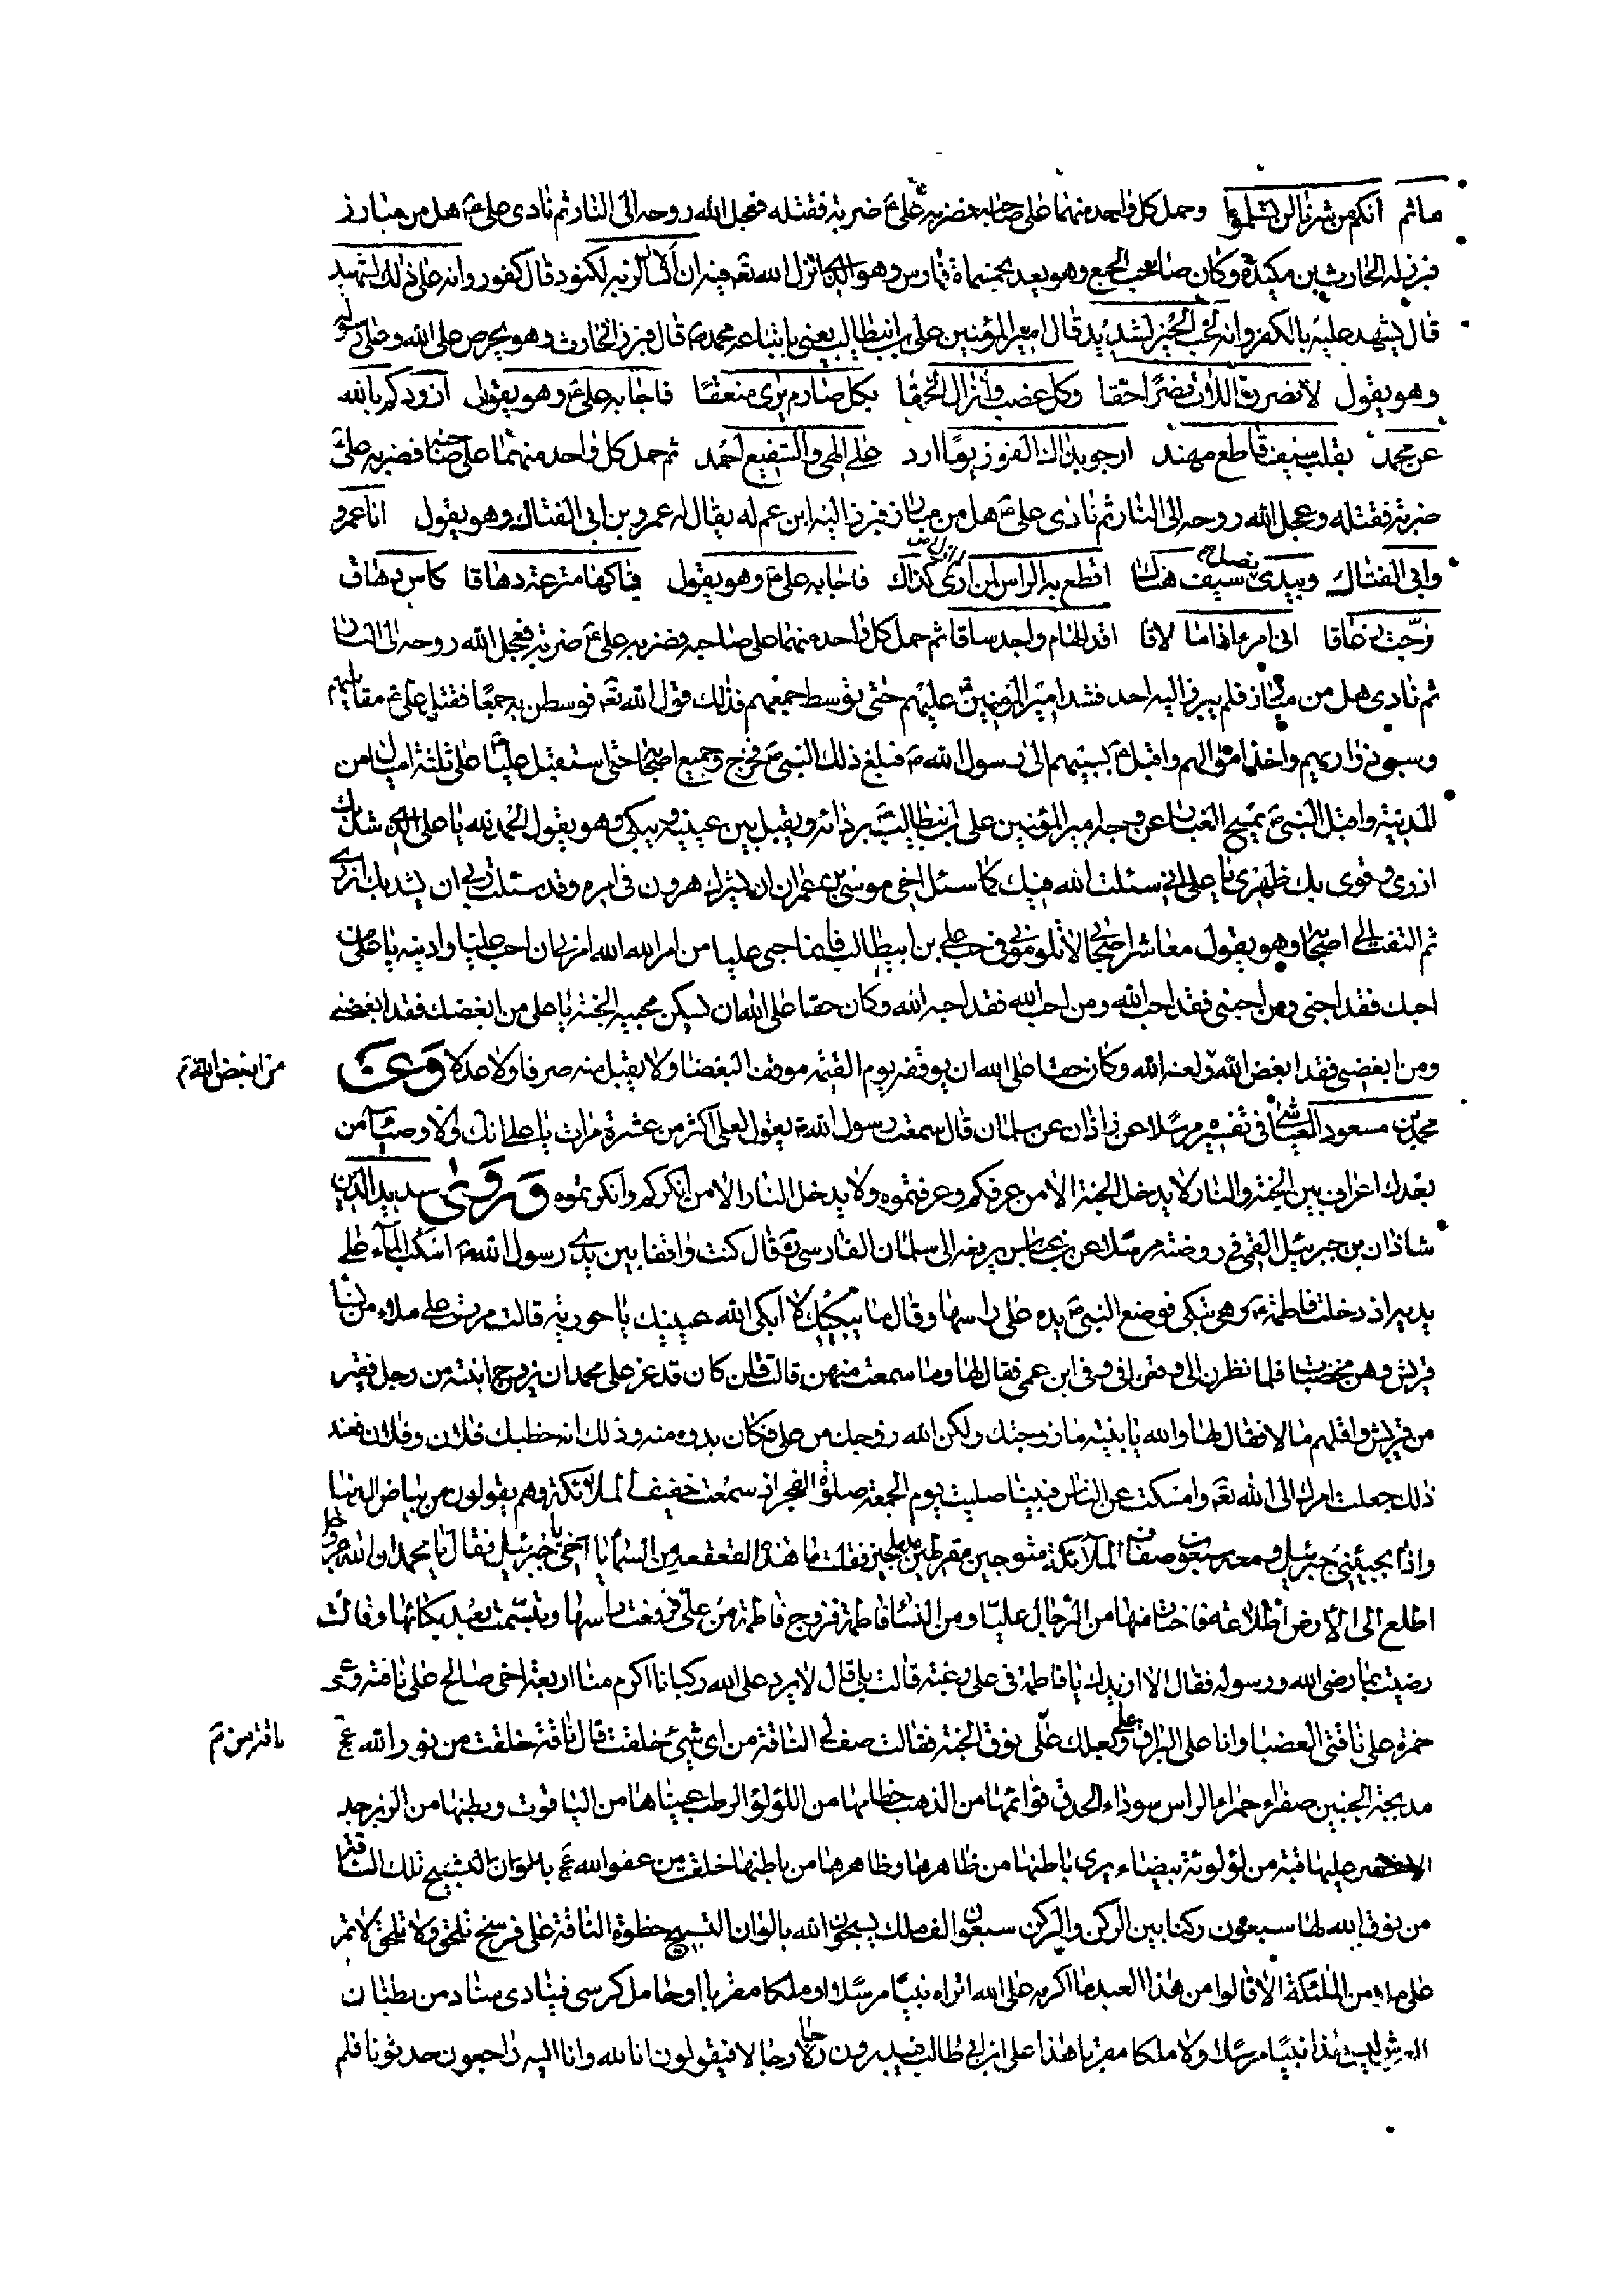 ماثم انكم من شرنا لن تسلموا وحمل كل واحد منهما على صاحبه فضربه علىّ ع ضربة فقتله فعجل الله روحه الى النار ثم نادى على ع هل من مبارز
فبرز له الحارث بن مكيدة وكان صاحب الجمع وهو يعد بخمسمأة فارس وهو الذى انزل الله تعه فيه ان الانسان لربه لكنود قال كفور وانه على ذلك لشهيد
قال يشهد عليه بالكفر وانه لحب الخير لشديد قال امير المؤمنين على بن ابيطالب يعنى باتباعه محمد ص قال فبرز الحارث وهو يحرص على الله وعلى رسوله
وهو يقول لانصرن اللات نصرا حقا وكل عضب وانزال الحمقا بكل صارم يرى منعقا فاجابه على ع وهو يقول ازودكم بالله
عن محمد بقلب سيف قاطع مهند ارجو بذاك الفوز يوما ارد على الهى والشفيع احمد ثم حمل كل واحد منهما على صاحبه فضربه على ع
ضربة فقتله وعجل الله روحه الى النار ثم نادى على ع هل من مبارز فبرز اليه ابن عم له يقال له عمرو بن ابى الفتاك وهو يقول انا عمرو
وابى الفتاك وبيدى نصل سيف هتاك اقطع به الراس لمن ارى كذاك فاجابه على ع وهو يقول فاكها مترعة دهاقا كاس دهاق
مزجت زعاقا انى امرء اذا ما لاقا اقد الهام واجد ساقا ثم حمل كل واحد منهما على صاحبه فضربه على ع ضربة فعجل الله روحه الى النار
ثم نادى هل من مبارز فلم يبرز اليه احد فشد امير المؤمنين ع عليهم حتى توسط جمعهم فذلك قول الله تعه فوسطن به جمعا فقتل على ع مقاتليهم
وسبى ذراريهم واخذ اموالهم واقبل ع بسبيهم الى رسول الله ص فبلغ ذلك النبى ص فخرج وجميع اصحابه حتى استقبل عليا على ثلثة اميال من
المدينة واقبل النبى ص يمسح الغبار عن وجه امير المؤمنين على بن ابيطالب بردائه ويقبل بين عينيه ويبكى وهو يقول الحمد لله يا على الذى شد بك
ازرى وقوى بك ظهرى يا على انى سئلت الله فيك كما سئل اخى موسى بن عمران ان يشرك هرون فى امره وقد سئلت ربى ان يشد بك ازرى
ثم التفت الى اصحابه وهو يقول معاشر اصحابى لا تلومونى فى حب على بن ابيطالب فانما حبى عليا من امر الله الله امرنى ان احب عليا وادنيه يا على من
احبك فقد احبنى ومن احبنى فقد احب الله ومن احب الله فقد احبه الله وكان حقا على الله ان يسكن محبيه الجنة يا على من ابغضك فقد ابغضنى
ومن ابغضنى فقد ابغض الله ولعنه الله وكان حقا على الله ان يوقفه يوم القيمة موقف البغضا ولا يقبل منه صرفا ولا عدلا وعن
من ابغض الله م
محمد بن مسعود العياشى فى تفسيره مرسلا عن زاذان عن سلمان قال سمعت رسول الله ص يقول لعلى اكثر من عشرة مرات يا على انك والاوصياء من
بعدك اعراف بين الجنة والنار لا يدخل الجنة الا من عرفكم وعرفتموه ولا يدخل النار الا من انكركم وانكرتموه وروى سديد الدين
شاذان بن جبرئيل القمى فى روضته مرسلا عن ابن عباس يرفعه الى سلمان الفارسى ره قال كنت واقفا بين يدى رسول الله ص اسكب الماء على
يديه اذ دخلت فاطمة ع وهى تبكى فوضع النبى ص يده على راسها وقال ما يبكيك لا ابكى الله عينيك يا حورية قالت مررت على ملاء من نساء
قريش وهن مخضبات فلما نظرن الى وقعن فى وفى ابن عمى فقال لها وما سمعت منهن قالت قلن كان قد عز على محمد ان يزوج ابنته من رجل فقير
من قريش واقلهم مالا فقال لها والله يا بنية ما زوجتك ولكن الله زوجك من على فكان بدوه منه وذلك انه خطبك فلان وفلان فعند
ذلك جعلت امرك الى الله تعه وامسكت عن الناس فبينا صليت يوم الجمعة صلوة الفجر اذ سمعت حفيف الملائكة وهم يقولون من بياض الدنيا
واذا بحبيبى جبرئيل ومعه سبعون صفا من الملآئكة متوجين مقرطين مدملجين فقلت ما هذه القعقعة من السماء يا اخى يا جبرئيل فقال يا محمد ان الله عز وجل
اطلع الى الارض اطلاعة فاختار منها من الرجال عليا ومن النساء فاطمة فزوج فاطمة من على فرفعت راسها وتبسمت بعد بكائها وقالت
رضيت بما رضى الله ورسوله فقال الا ازيدك يا فاطمة فى على رغبة قالت بلى قال لا يرد على الله ركبانا اكرم منا اربعة اخى صالح على ناقته وعمى
حمزة على ناقتى العضبا وانا على البراق وبعلك على نوق الجنة فقالت صف لى الناقة من اى شئ خلقت قال ناقة خلقت من نور الله عج
ناقة من م
مدبجة الجنبين صفراء حمراء الراس سوداء الحدق قوائمها من الذهب خطامها من اللؤلؤ الرطب عيناها من الياقوت وبطنها من الزبرجد
الاخضر عليها قبة من لؤلؤة بيضاء يرى باطنها من ظاهرها وظاهرها من باطنها خلقت من عفو الله عج بالوان التسبيح تلك الناقة
من نوق الله لها سبعون ركنا بين الركن والركن سبعون الف ملك يسبحون الله بالوان التسبيح خطوة الناقة على فرسخ تلحق ولا تلحق لا تمر
على ملاء من الملئكة الا قالوا من هذا العبد ما اكرمه على الله اتراه نبيا مرسلا او ملكا مقربا او حامل كرسى فينادى مناد من بطنان
العرش ليس هذا نبيا مرسلا ولا ملكا مقربا هذا على بن ابى طالب فيبدرون رجالا رجالا فيقولون انا لله وانا اليه راجعون حدثونا فلم